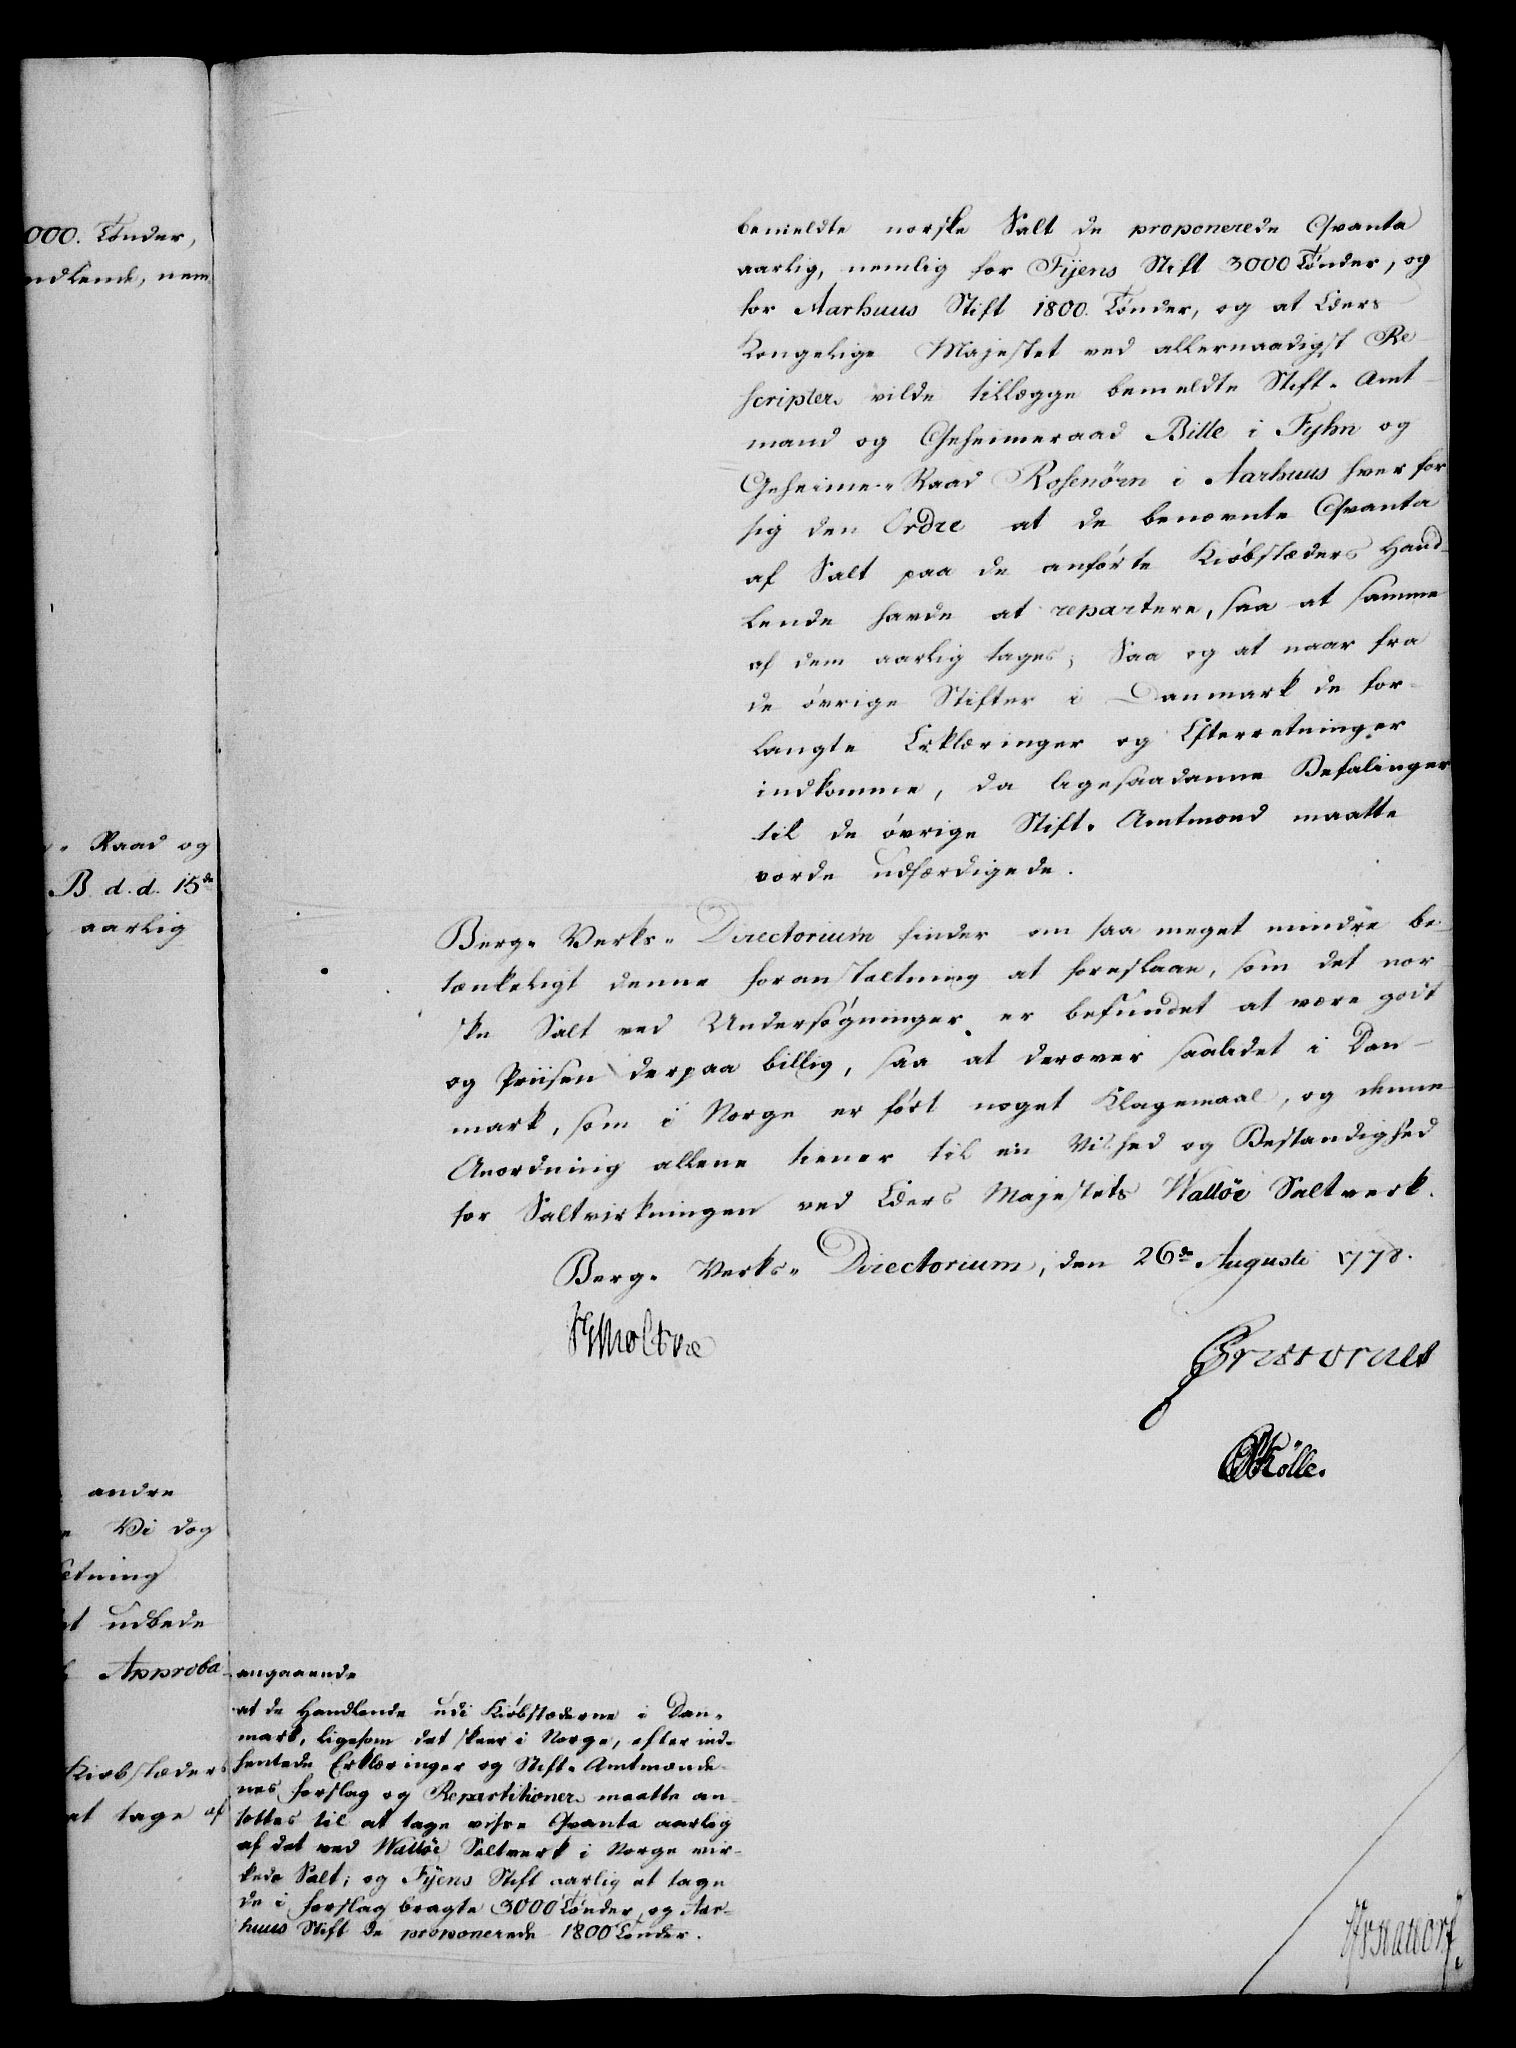 000. Tønder,
ndlende, nem
Raad og
B. d. d. 15de
aarlig
andre
Vi dog
ætning
udbede
Approba
Kiøbstæders
at tage af
bemeldte norske Salt de proponerede Qvanta
aarlig, nemlig for Fyens Stift 3000 Tønder, og
for Aarhuus Stift 1800. Tønder, og at Eders
Kongelige Majestet ved allernaadigst Re-
scripter vilde tillægge bemeldte Stift-Amt-
mand og Geheimeraad Bille i Fyhn og
Geheime-Raad Rosenörn i Aarhuus hver for
sig den Ordre at de benævnte Qvanta
af Salt paa de anførte Kiøbstæders Hand-
lende havde at repartere, saa at samme
af dem aarlig tages; Saa og at naar fra
de øvrige Stifter i Danmark de for-
langte Erklæringer og Efterretninger
indkomme, da ligesaadanne Befalinger
til de øvrige Stift-Amtmænd maatte
vorde udfærdigede.
Berg-Verks-Directorium finder om saa meget mindre be-
tænkeligt denne foranstaltning at foreslaae, som det nor
ske Salt ved Undersøgninger er befundet at være godt
og Priisen derpaa billig, saa at derover saalidet i Dan-
mark, som i Norge er ført noget Klagemaal, og denne
Anordning allene tiener til en Vished og Bestandighed
for Saltvirkningen ved Eders Majestets Walløe Saltverk.
Berg-Verks-Directorium, den 26de Augusti 1778.
Moltke
Kölle.
angaaende
at de Handlende udi Kiøbstæderne i Dan-
mark, ligesom det skeer i Norge, efter ind-
hentede Erklæringer og Stift-Amtmænde-
nes forslag og Repartitioner maatte an-
sættes til at tage visse Qvanta aarlig
af det ved Walløe Saltverk i Norge vir-
kede Salt; og Fyens Stift aarlig at tage
de i forslag bragte 3000 Tønder, og Aar-
huus Stift de proponerede 1800 Tønder.